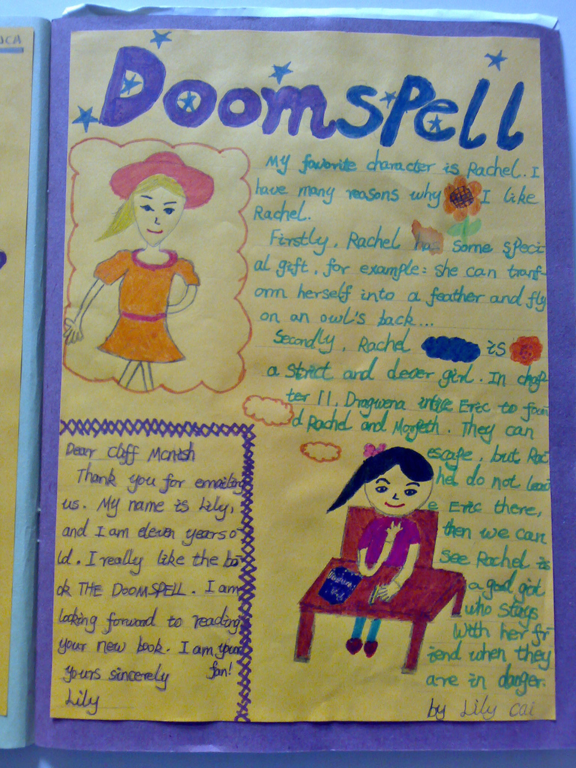 ICA
DoomSpell
My favorite character is Rachel. I
have many reasons why I like
Rachel.
Firstly, Rachel has some speci
al gift, for example: she can transf-
orm herself into a feather and fly
on an owl's back...
Secondly, Rachel is
a strict and clever girl. In chap
ter 11, Dragwena Eric to foun
d Rachel and Morpeth. They can
escape, but Rac
hel do not leav
e Eric there,
then we can
see Rachel is
a good girl
who stays
with her fr
iend when they
are in danger.
by Lily Cai
Dear Cliff McNish
Thank you for emailing
us. My name is Lily,
and I am eleven years o
ld. I really like the bo
ok THE DOOMSPELL. I am
looking forward to reading
your new book. I am your
fan!
Yours sincerely
Lily